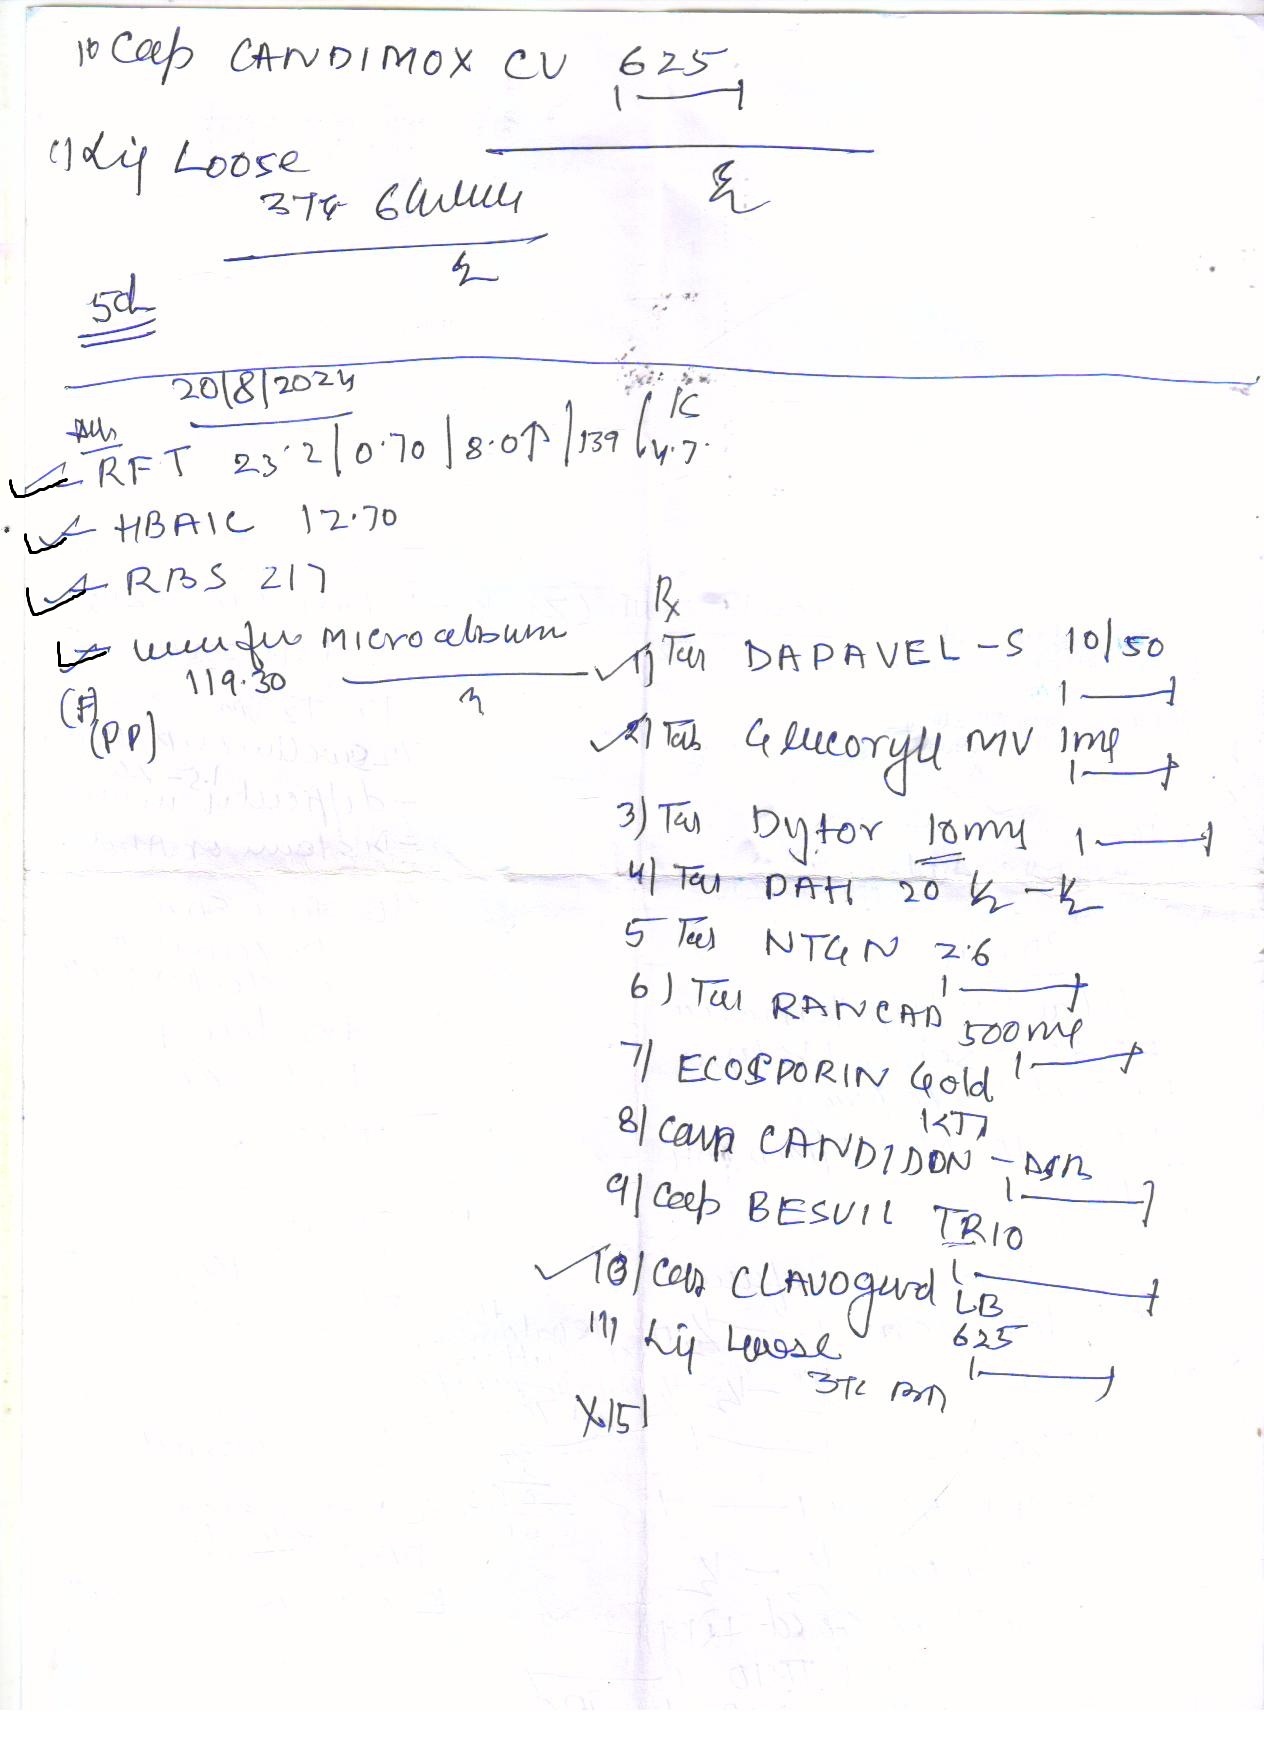 10 Cap CANDIMOX CV 625
1 — 1
11) Liq Loose
3T4
5d
20/8/2024
RFT 23.2 | 0.70 | 8.0↑ | 139 | K 4.7
HBA1C 12.70
RBS 217
urine for microalbum
119.30
(F)
(PP)
Rx
1) Tab DAPAVEL-S 10/50
1 — 1
2) Tab Glucoryl MV 1mg
1 — 1
3) Tab Dytor 10mg 1 — 1
4) Tab DAH 20 ½ - ½
5 Tab NTGN 2.6
1 — 1
6) Tab RANCAD 500mg
1 — 1
7) ECOSPORIN Gold
8) Cap CANDIDON - DSR
1 — 1
9) Cap BESVIL TRIO
1 — 1
10) Cap CLAVOgurd LB
625
1 — 1
11) Liq Loose
X 15